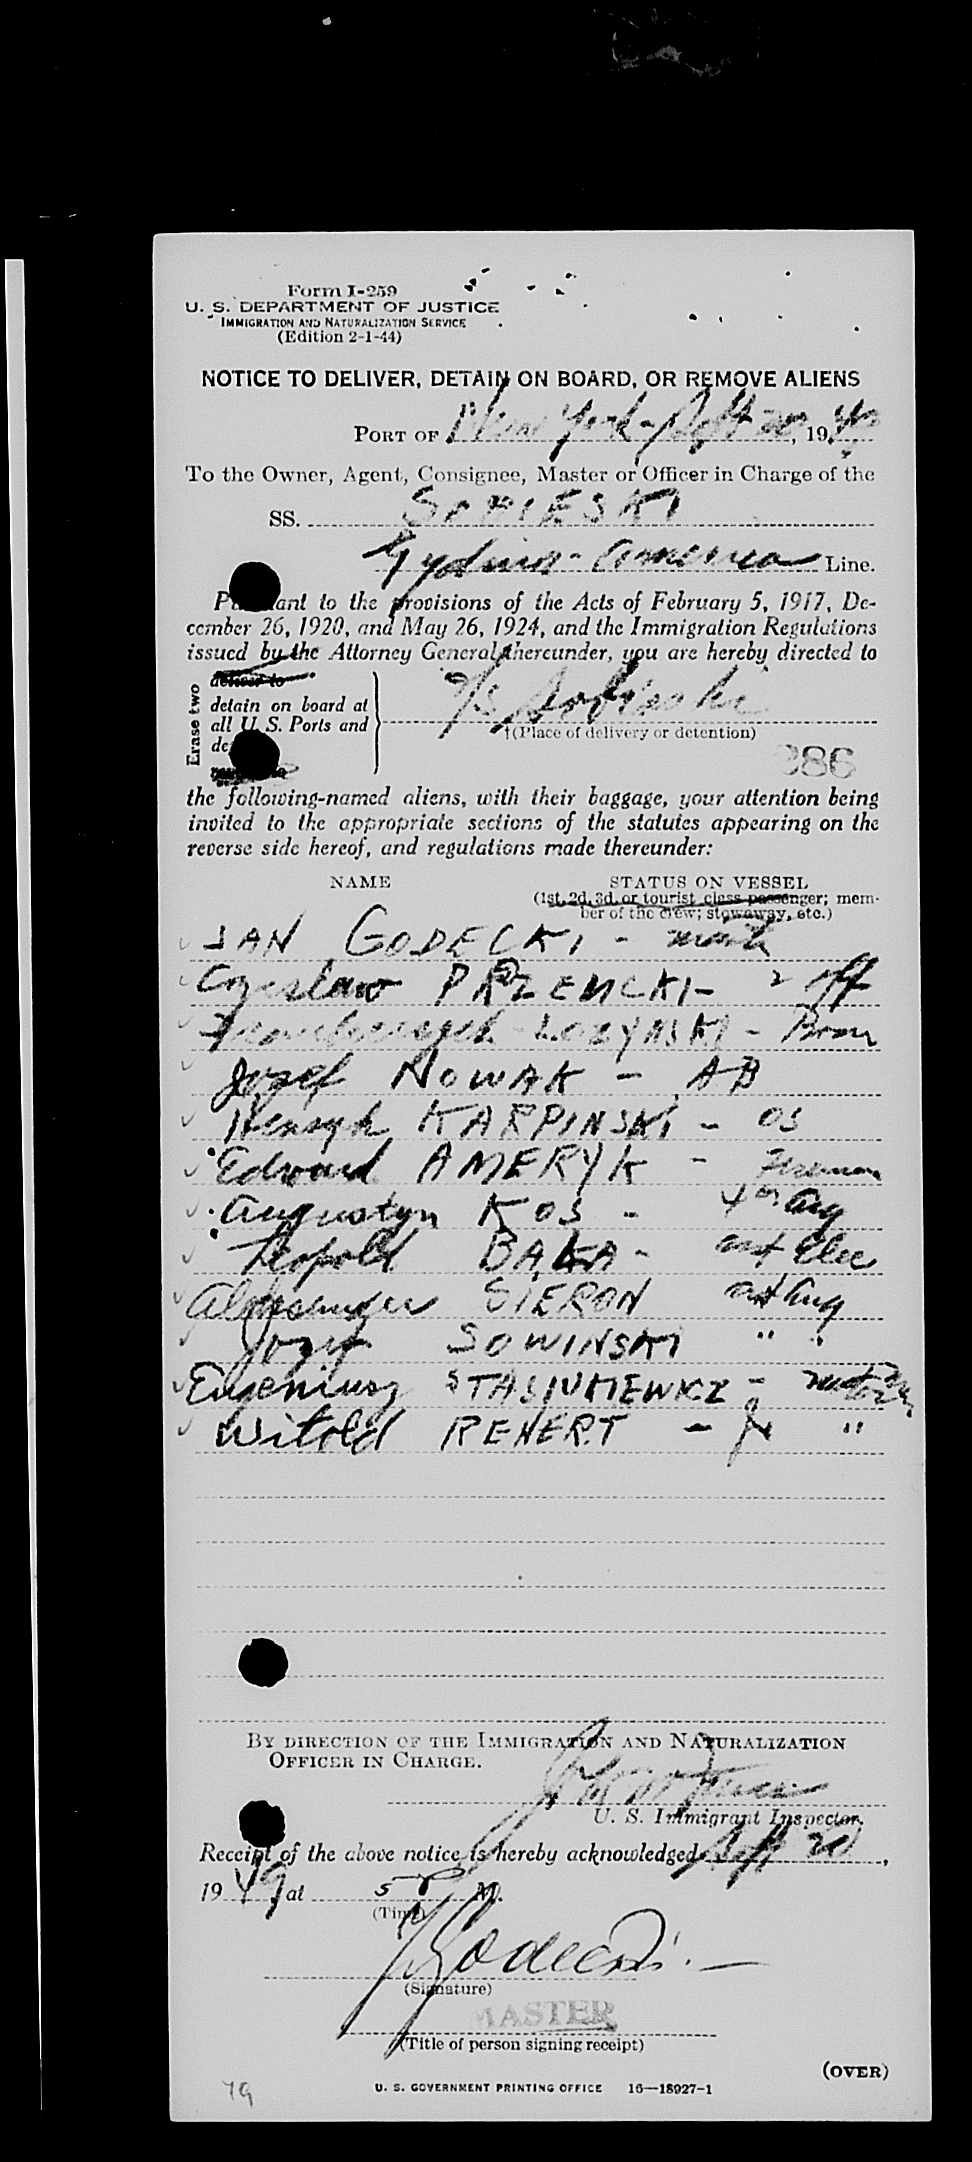 Form I-259
U. S. DEPARTMENT OF JUSTICE
IMMIGRATION AND NATURALIZATION SERVICE
(Edition 2-1-44)
NOTICE TO DELIVER, DETAIN ON BOARD, OR REMOVE ALIENS
PORT OF New York - Sept 20, 19
To the Owner, Agent, Consignee, Master or Officer in Charge of the
SS. SOBIESKI
Gydnia - America Line.
Pursuant to the provisions of the Acts of February 5, 1917, De-
cember 26, 1920, and May 26, 1924, and the Immigration Regulations
issued by the Attorney General thereunder, you are hereby directed to
Erase two
deliver to
detain on board at
all U. S. Ports and
S/S Sobieski
†(Place of delivery or detention)
286
the following-named aliens, with their baggage, your attention being
invited to the appropriate sections of the statutes appearing on the
reverse side hereof, and regulations made thereunder:
NAME STATUS ON VESSEL
(1st, 2d, 3d, or tourist class passenger; mem-
ber of the crew; stowaway, etc.)
JAN GODECKI -
Czeslaw PRZEMCKI - 2 off
LOZYNSKI -
Jozef NOWAK - AB
Henryk KARPINSKI - OS
Edward AMERYK -
Augustyn KOS - 4th Eng
Leopold BAKA - ast Elec
Aleksander SIERON ast Eng
Jozef SOWINSKI " "
Eugeniusz STASIUKIEWICZ -
Witold RENERT - "
BY DIRECTION OF THE IMMIGRATION AND NATURALIZATION
OFFICER IN CHARGE.
U. S. Immigrant Inspector.
Receipt of the above notice is hereby acknowledged Sept 20,
1949 at 5 P M.
(Time)
J Godecki. —
(Signature)
MASTER
(Title of person signing receipt)
(OVER)
U. S. GOVERNMENT PRINTING OFFICE 16—18927-1
79